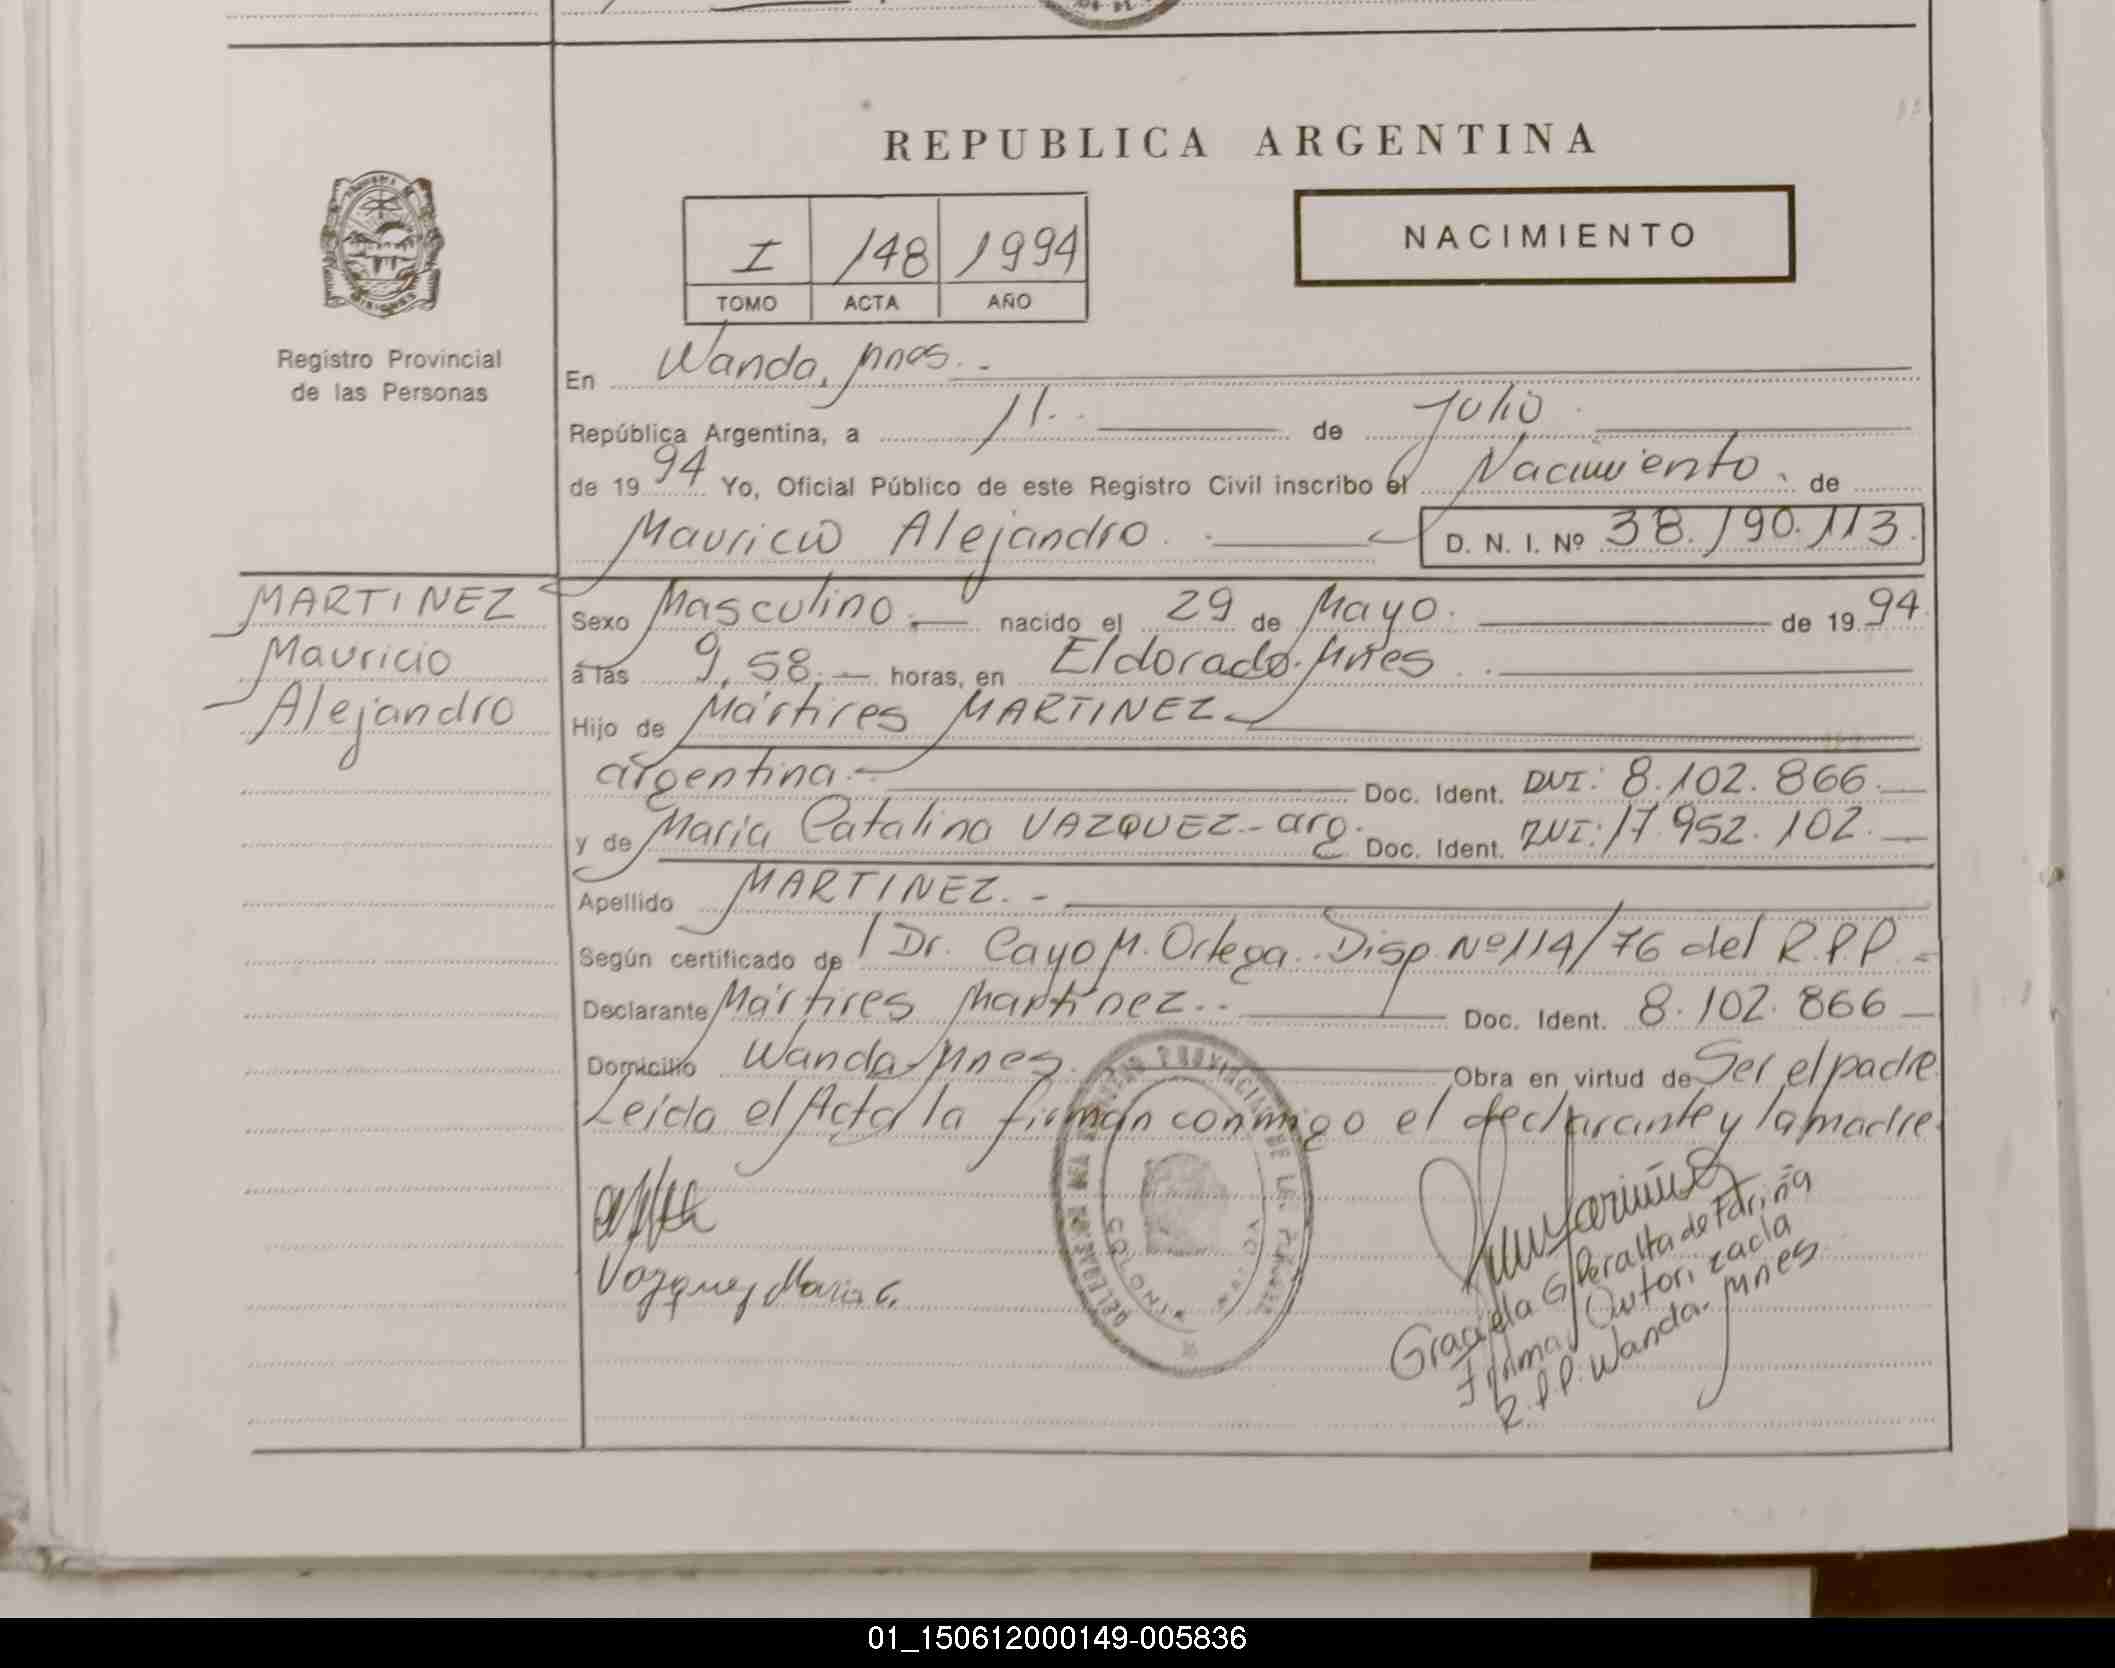 REPUBLICA ARGENTINA
I 148 1994
TOMO ACTA AÑO
NACIMIENTO
Registro Provincial
de las Personas
En Wanda, Mnes. -
República Argentina, a 11. - de Julio
de 19 94 Yo, Oficial Público de este Registro Civil inscribo el Nacimiento. de
Mauricio Alejandro. D. N. I. Nº 38.190.113.
MARTINEZ
Mauricio
Alejandro
Sexo Masculino. — nacido el 29 de Mayo. de 19 94
a las 9,58. — horas, en Eldorado. Mnes
Hijo de Mártires MARTINEZ
argentina. — Doc. Ident. DNI: 8.102.866. —
y de María Catalina VAZQUEZ - arg. Doc. Ident. DNI: 17.952.102. —
Apellido MARTINEZ. -
Según certificado de Dr. Cayo M. Ortega. Disp. Nº 114/76 del R.P.P. -
Declarante Mártires Martínez. - Doc. Ident. 8.102.866 —
Domicilio Wanda Mnes. Obra en virtud de Ser el padre.
Leída el Acta la firman conmigo el declarante y la madre.
Vazquez Maria C.
Graciela G Peralta de Fariña
Firma Autorizada
R.P.P. Wanda. Mnes
01_150612000149-005836